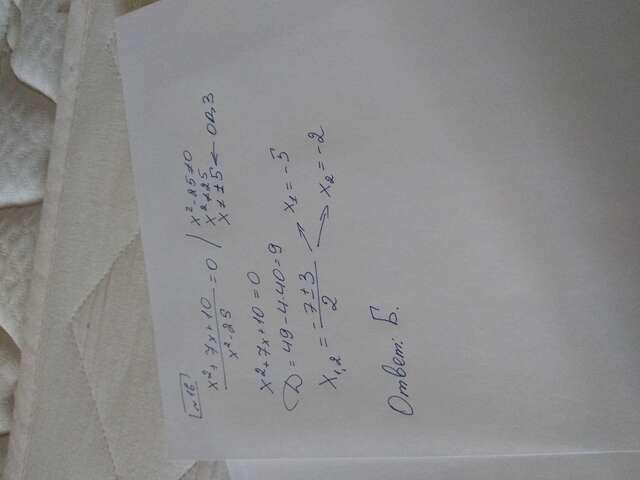 №16
x²+7x+10 / x²-25 = 0
x²-25≠0
x²≠25
x≠±5 ← ОДЗ
x²+7x+10=0
D=49-4·40=9
x₁,₂ = -7±3 / 2
x₁=-5
x₂=-2
Ответ: Б.